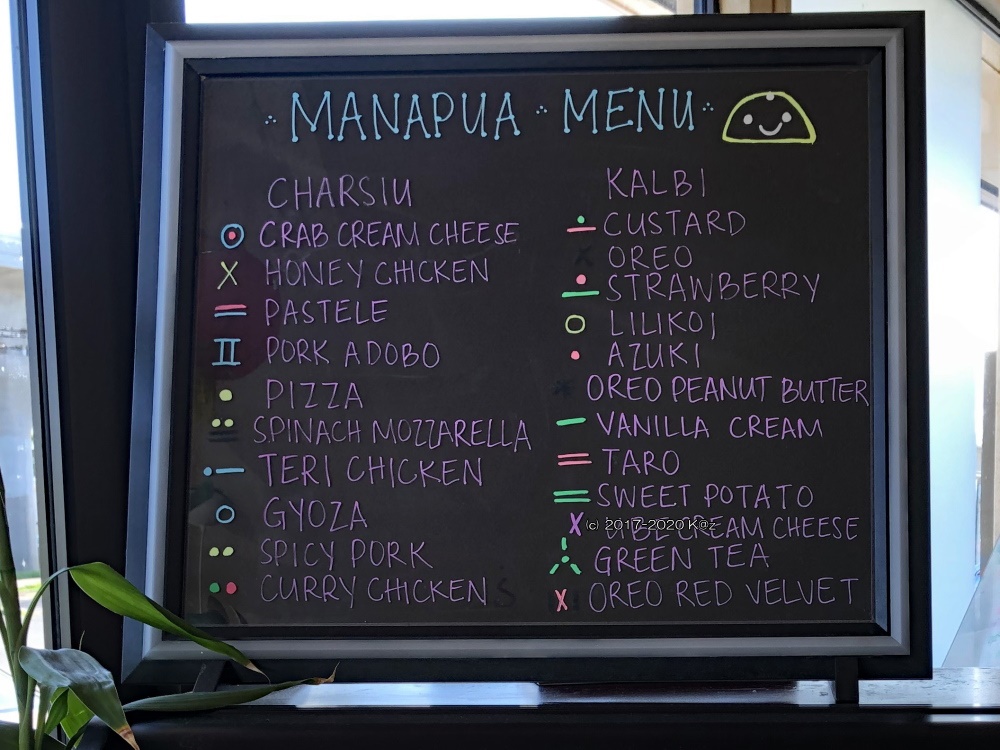 MANAPUA MENU
CHARSIU
CRAB CREAM CHEESE
HONEY CHICKEN
PASTELE
PORK ADOBO
PIZZA
SPINACH MOZZARELLA
TERI CHICKEN
GYOZA
SPICY PORK
CURRY CHICKEN
KALBI
CUSTARD
OREO
STRAWBERRY
LILIKOI
AZUKI
OREO PEANUT BUTTER
VANILLA CREAM
TARO
SWEET POTATO
CREAM CHEESE
(c) 2017-2020 K@z
GREEN TEA
OREO RED VELVET